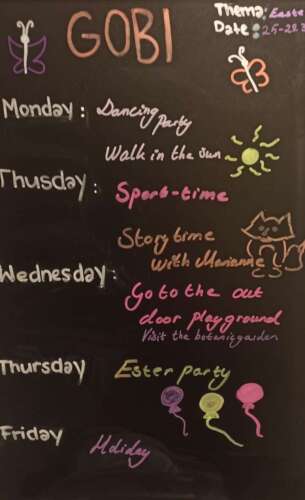 GOBI
Thema: Easte
Date: 25-
Monday: Dancing
Party
Walk in the sun
Thusday: Sport-time
Story time
with Marianne
Wednesday:
Go to the out
door playground
Visit the botanic garden
Thursday Ester party
Friday Holiday